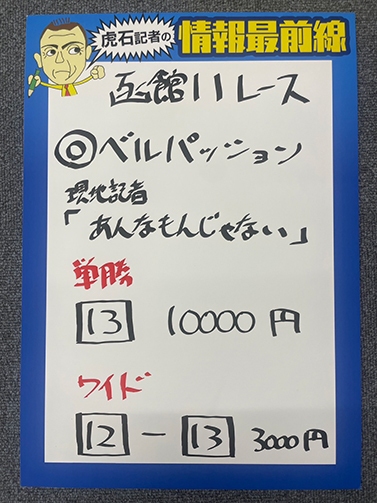 虎石記者の
情報最前線
函館11レース
◎ベルパッション
現地記者
「あんなもんじゃない」
単勝
13 10000円
ワイド
12 － 13 3000円